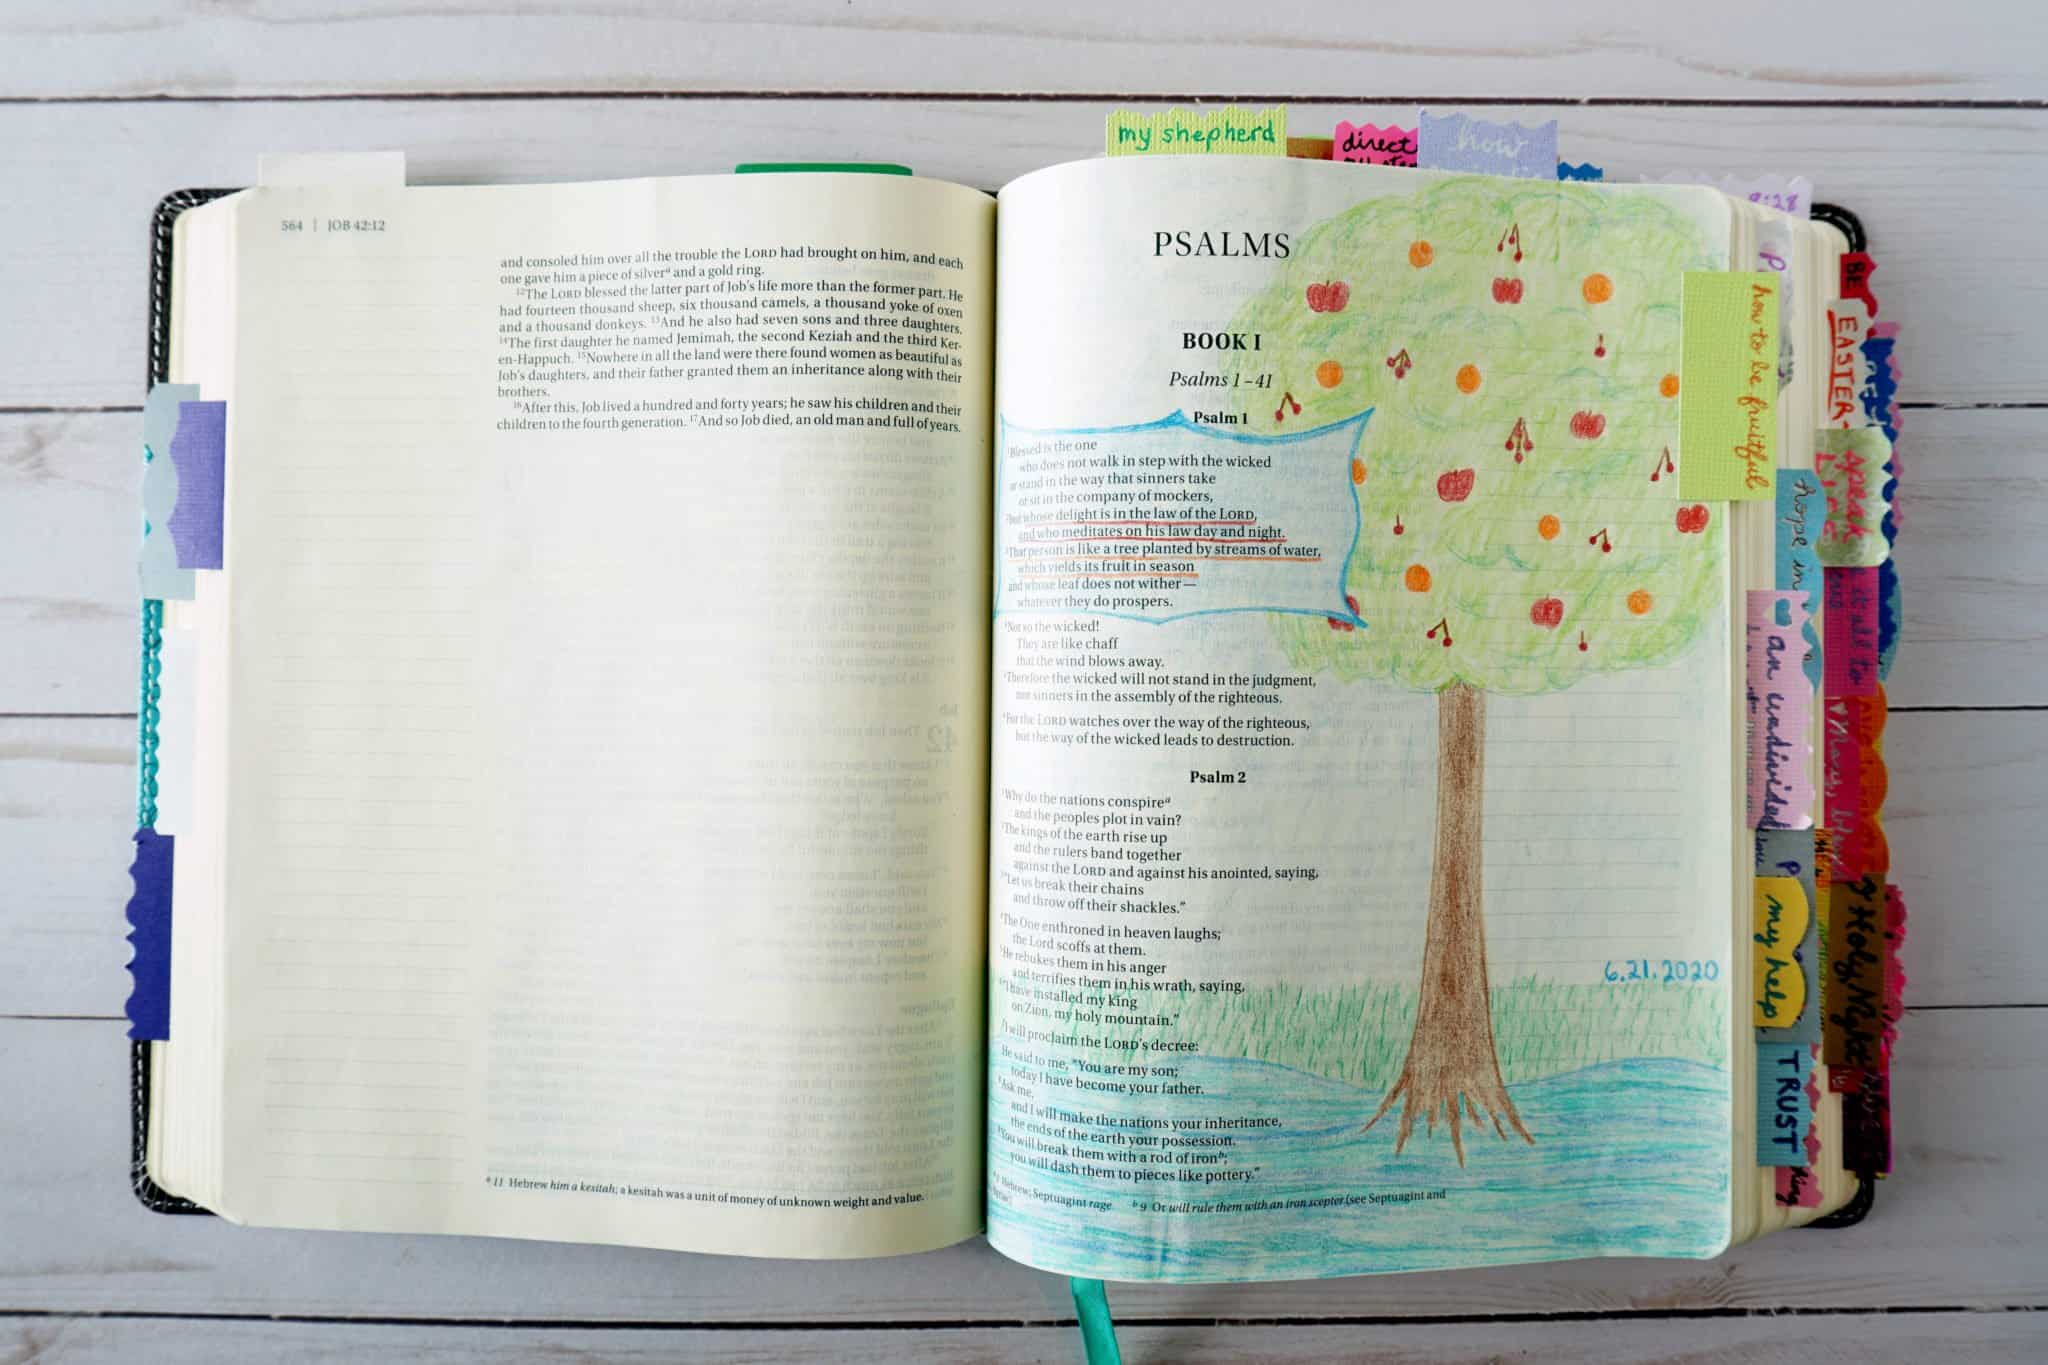 564 | JOB 42:12
and consoled him over all the trouble the LORD had brought on him, and each
one gave him a piece of silverᵃ and a gold ring.
¹²The LORD blessed the latter part of Job's life more than the former part. He
had fourteen thousand sheep, six thousand camels, a thousand yoke of oxen
and a thousand donkeys. ¹³And he also had seven sons and three daughters.
¹⁴The first daughter he named Jemimah, the second Keziah and the third Ker-
en-Happuch. ¹⁵Nowhere in all the land were there found women as beautiful as
Job's daughters, and their father granted them an inheritance along with their
brothers.
¹⁶After this, Job lived a hundred and forty years; he saw his children and their
children to the fourth generation. ¹⁷And so Job died, an old man and full of years.
ᵃ 11 Hebrew him a kesitah; a kesitah was a unit of money of unknown weight and value.
my shepherd
direct
how
8:28
PSALMS
BOOK I
Psalms 1–41
Psalm 1
¹Blessed is the one
who does not walk in step with the wicked
or stand in the way that sinners take
or sit in the company of mockers,
²but whose delight is in the law of the LORD,
and who meditates on his law day and night.
³That person is like a tree planted by streams of water,
which yields its fruit in season
and whose leaf does not wither—
whatever they do prospers.
⁴Not so the wicked!
They are like chaff
that the wind blows away.
⁵Therefore the wicked will not stand in the judgment,
nor sinners in the assembly of the righteous.
⁶For the LORD watches over the way of the righteous,
but the way of the wicked leads to destruction.
Psalm 2
¹Why do the nations conspireᵃ
and the peoples plot in vain?
²The kings of the earth rise up
and the rulers band together
against the LORD and against his anointed, saying,
³"Let us break their chains
and throw off their shackles."
⁴The One enthroned in heaven laughs;
the Lord scoffs at them.
⁵He rebukes them in his anger
and terrifies them in his wrath, saying,
⁶"I have installed my king
on Zion, my holy mountain."
⁷I will proclaim the LORD's decree:
He said to me, "You are my son;
today I have become your father.
⁸Ask me,
and I will make the nations your inheritance,
the ends of the earth your possession.
⁹You will break them with a rod of ironᵇ;
you will dash them to pieces like pottery."
Hebrew; Septuagint rage
ᵇ 9 Or will rule them with an iron scepter (see Septuagint and
6.21.2020
how to be fruitful
BE
EASTER
speak
hope in
it all to
an undivided
Mary,
my help
Holy Night
TRUST
King